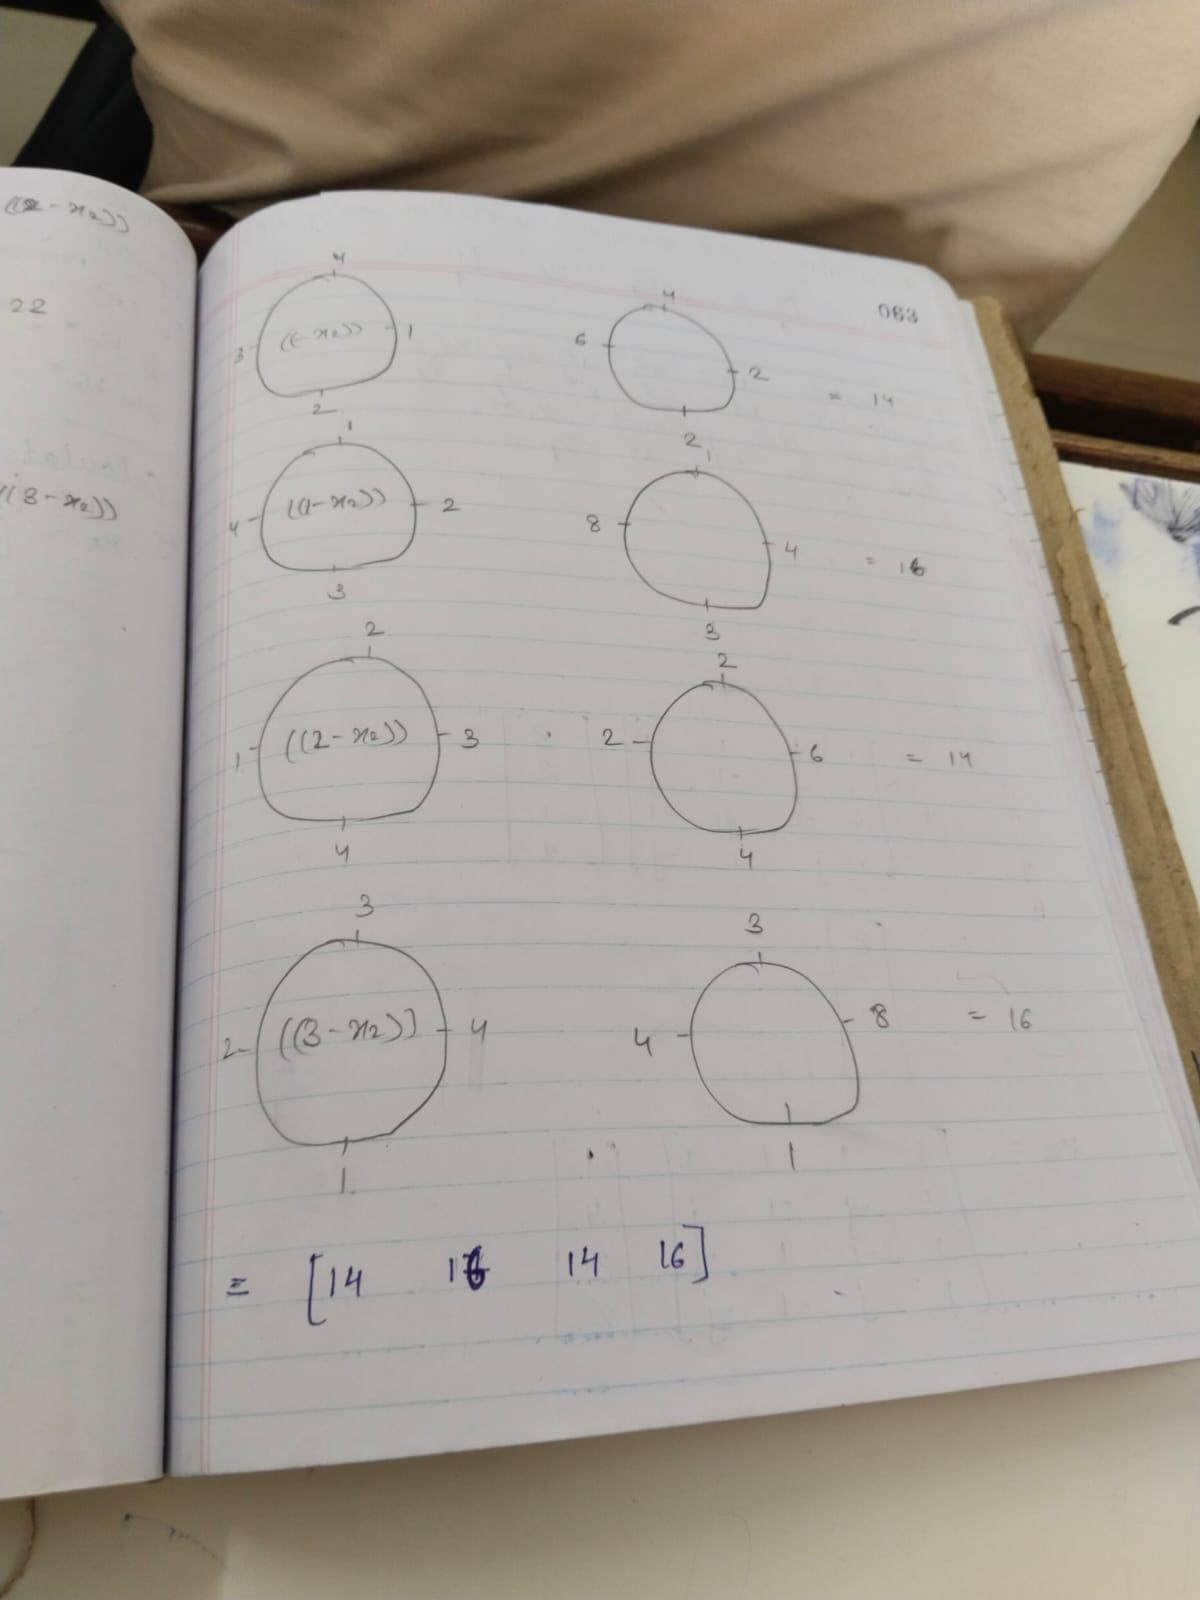 - x2))
22
((3-x2))
063
4
3 ((-x2)) 1
2
4
6 2 = 14
2
1
4 ((1-x2)) 2
3
1
8 4 = 16
3
2
1 ((2-x2)) 3
4
2
2 6 = 14
4
3
2 ((3-x2)] 4
1
3
4 8 = 16
1
= [14 16 14 16]